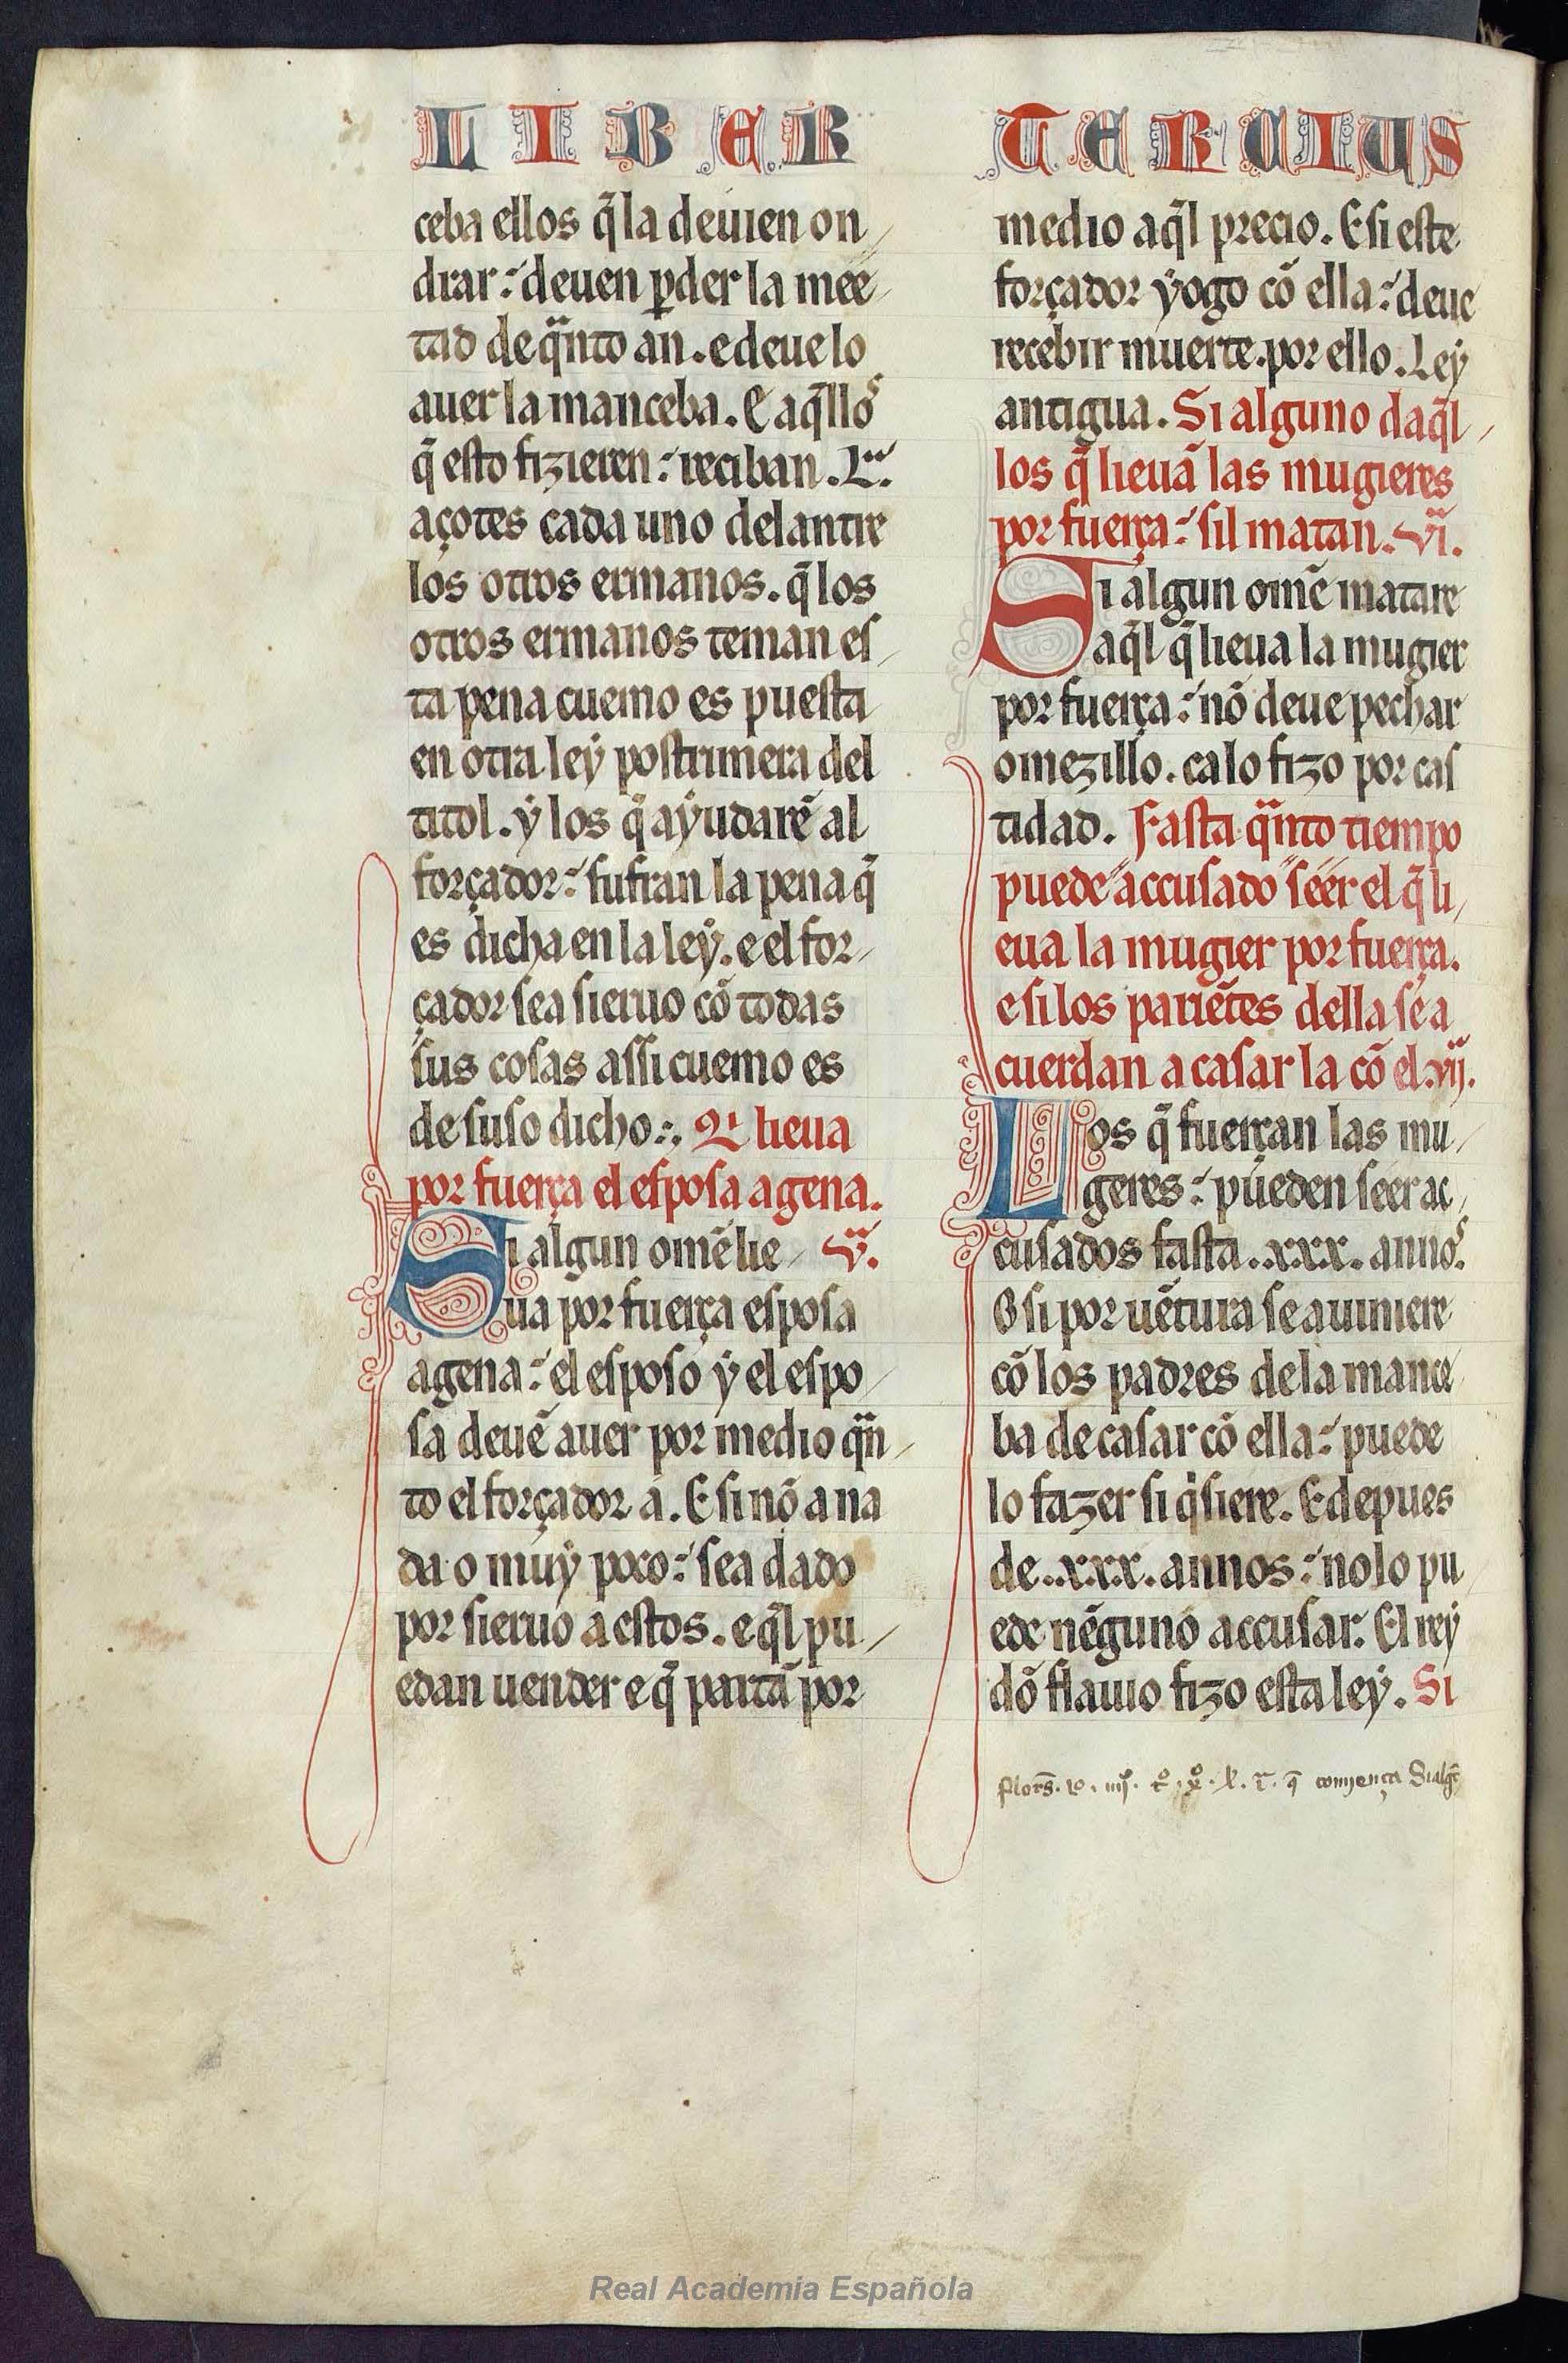 LIBER
ceba ellos q̃ la deuien on
drar: deuen ꝑder la mee
tad de qͣnto an. e deue lo
auer la manceba. E aq̃llos
q̃ esto fizieren: reciban .L.ͣ
açotes cada uno delantre
los otros ermanos. q̃ los
otros ermanos teman es
ta pena cuemo es puesta
en otra ley postrimera del
titol. y los q̃ ayudarẽ al
forçador: sufran la pena q̃
es dicha en la ley. e el for
çador sea sieruo cõ todas
sus cosas assi cuemo es
de suso dicho:. lieua
por fuerça el esposa agena.
Si algun omẽ lie v.ͣ
ua por fuerça esposa
agena: el esposo y el espo
sa deuẽ auer por medio qͣn
to el forçador a. E si nõ a na
da o muy poco: sea dado
por sieruo a estos. e q̃l pu
edan uender e q̃ partã por
TERCIUS
medio aq̃l precio. E si este
forçador yogo cõ ella: deue
recebir muerte. por ello. Ley
antigua. Si alguno daq̃l
los q̃ lieuã las mugieres
por fuerça: sil matan. vi.ͣ
Si algun omẽ matare
aq̃l q̃ lieua la mugier
por fuerça: nõ deue pechar
omezillo. ca lo fizo por cas
tidad. Fasta qͣnto tiempo
puede accusado seer el q̃ li
eua la mugier por fuerça.
e si los pariẽtes della se a
cuerdan a casar la cõ el. vij.ͣ
Los q̃ fuerçan las mu
geres: pueden seer ac
cusados fasta .xxx. annos.
O si por uẽtura se auiniere
cõ los padres de la mance
ba de casar cõ ella: puede
lo fazer si qͥsiere. E depues
de .xxx. annos: no lo pu
ede nẽguno accusar. El rey
dõ flauio fizo esta ley. Si
q̃ comença Si alg
Real Academia Española